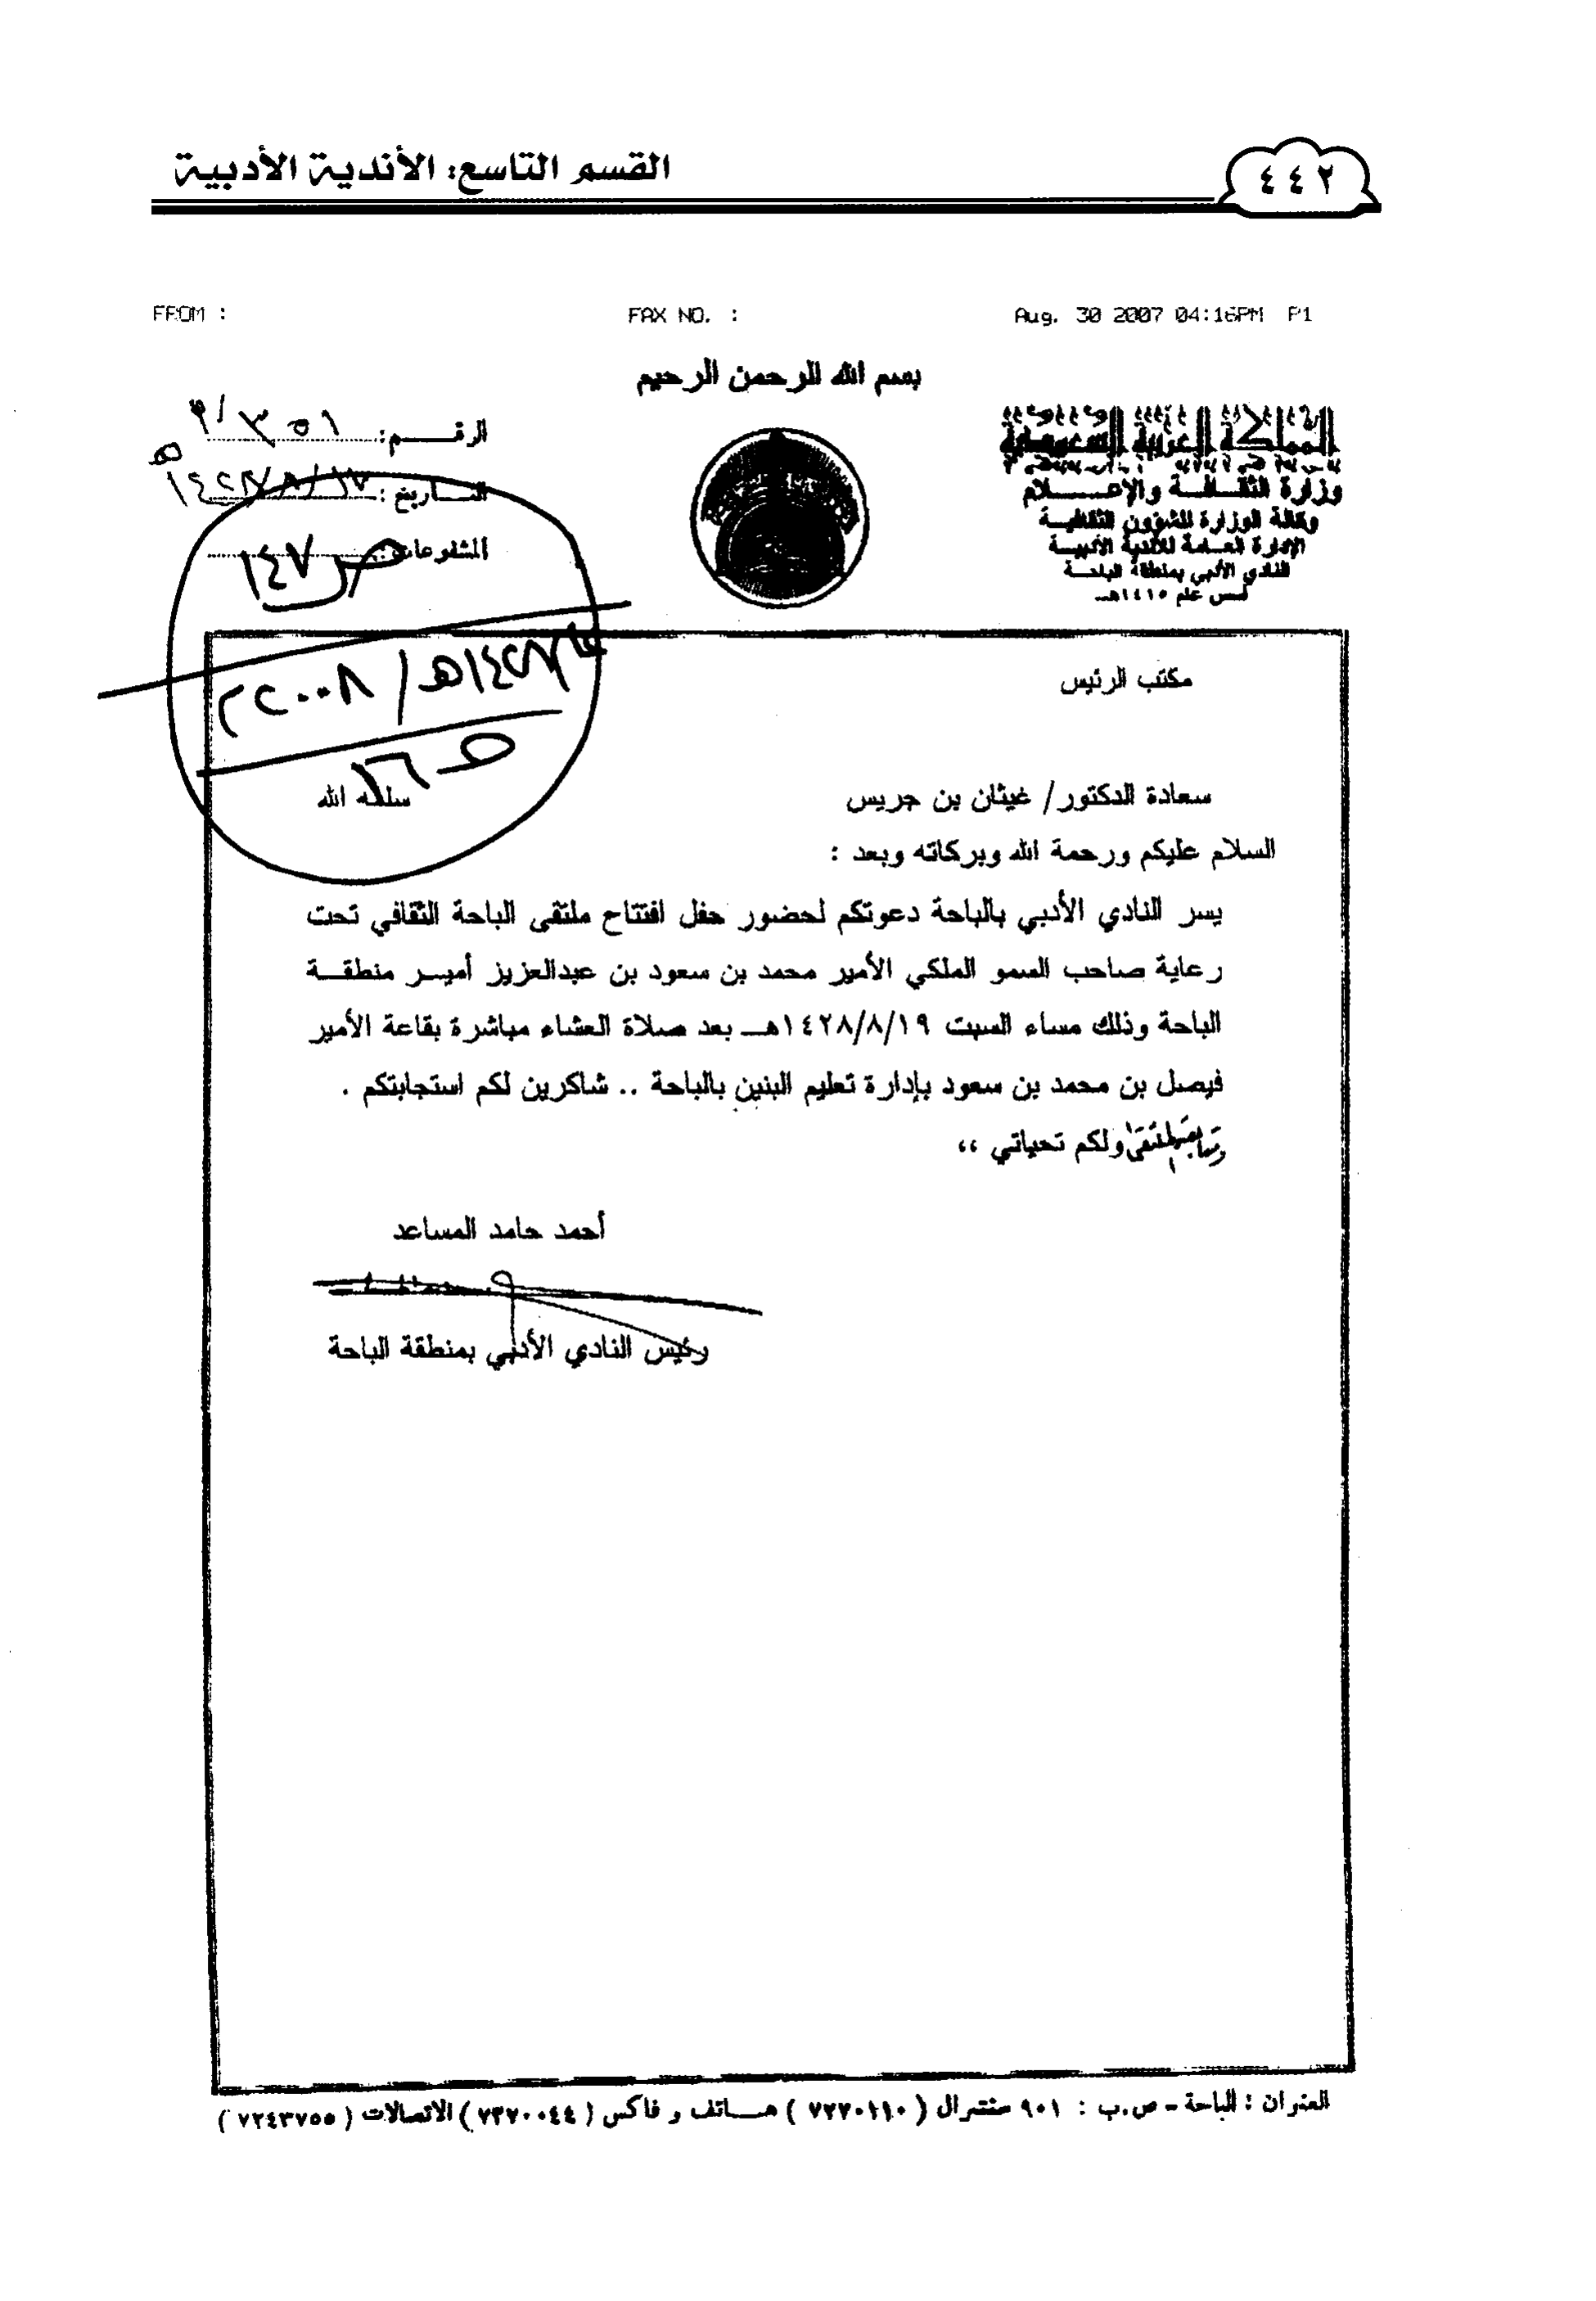 القسم التاسع: الأندية الأدبية
٤٤٢
FROM :
FAX NO. :
Aug. 30 2007 04:16PM P1
بسم الله الرحمن الرحيم
المملكة العربية السعودية
وزارة الثقافة والإعلام
وكالة الوزارة للشؤون الثقافية
الإدارة العامة للأندية الأدبية
النادي الأدبي بمنطقة الباحة
أسس عام ١٤١٥هـ
الرقم:
التاريخ:
المشفوعات:
ص ١٤٧
مكتب الرئيس
سعادة الدكتور/ غيثان بن جريس
سلمه الله
السلام عليكم ورحمة الله وبركاته وبعد :
يسر النادي الأدبي بالباحة دعوتكم لحضور حفل افتتاح ملتقى الباحة الثقافي تحت
رعاية صاحب السمو الملكي الأمير محمد بن سعود بن عبدالعزيز أمير منطقة
الباحة وذلك مساء السبت ١٤٢٨/٨/١٩هـ بعد صلاة العشاء مباشرة بقاعة الأمير
فيصل بن محمد بن سعود بإدارة تعليم البنين بالباحة .. شاكرين لكم استجابتكم .
ولكم تحياتي ،،
أحمد حامد المساعد
رئيس النادي الأدبي بمنطقة الباحة
العنوان : الباحة - ص.ب : ٩٠١ سنترال ( ٧٢٧٠١١٠ ) هاتف و فاكس ( ٧٢٧٠٠٤٤ ) الاتصالات ( ٧٢٤٣٧٥٥ )